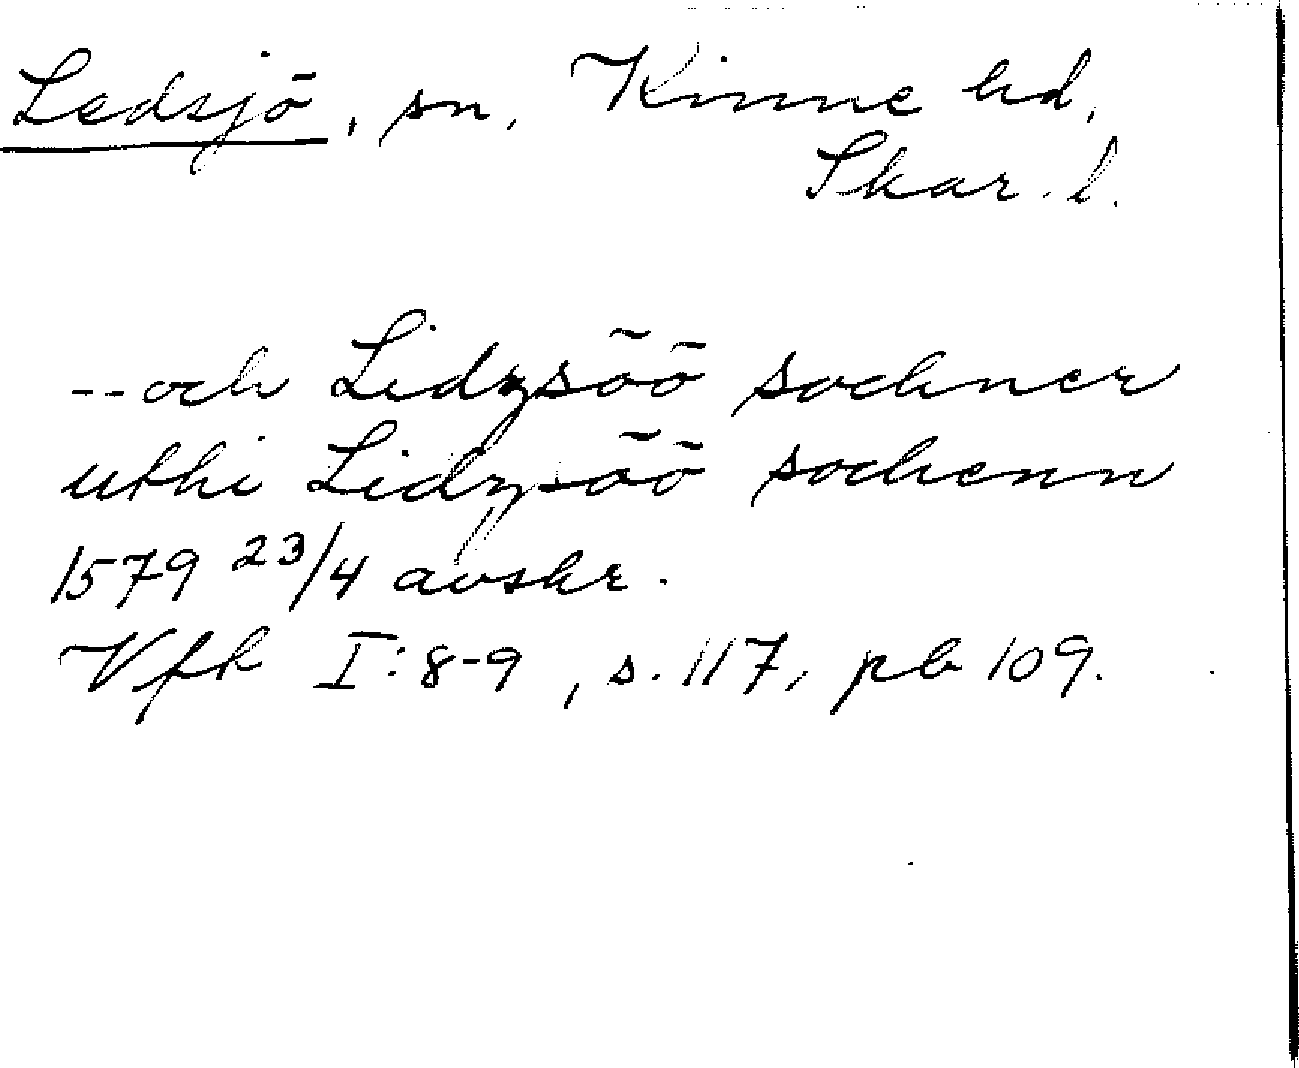 Ledsjö, sn, Kinne hd,
Skar. l.
-- och Lidzsöö sochner
uthi Lidzsöö sochenn
1579 23/4 avskr.
Vfk I:8-9, s. 117, pb 109.